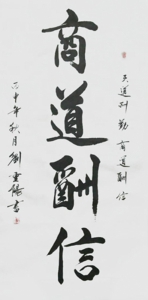 商道酬信
天道酬勤 商道酬信
丙申年秋月劉重陽書